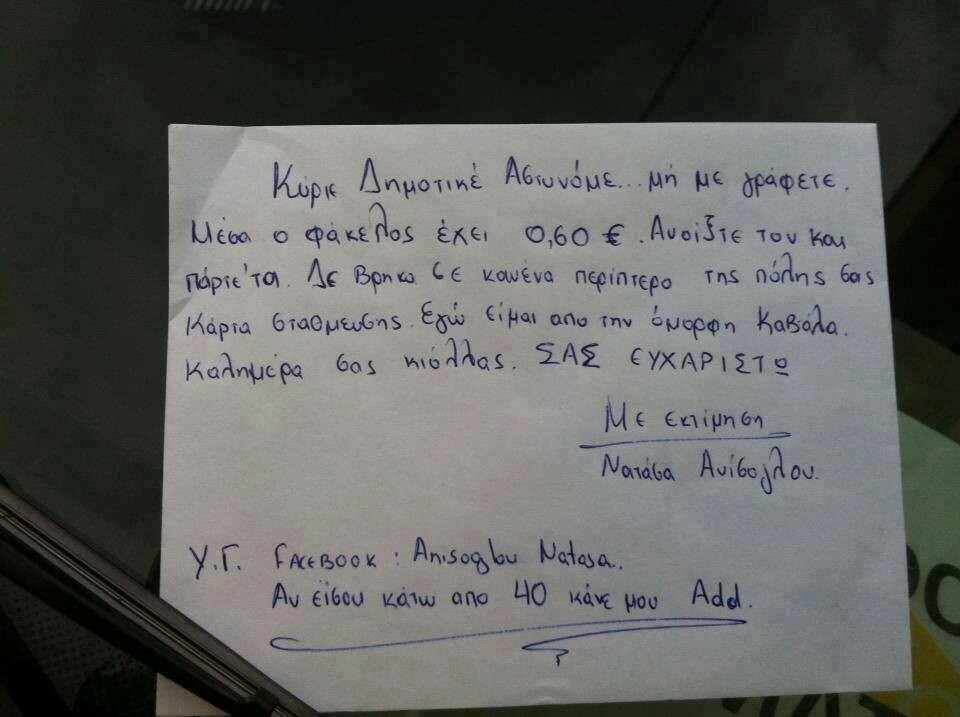 Κύριε Δημοτικέ Αστυνόμε... μή με γράφετε.
Μέσα ο φάκελος έχει 0,60 €. Ανοίξτε τον και
πάρτε'τα. Δε Βρηκα σε κανένα περίπτερο της πόλης σας
Κάρτα στάθμευσης. Εγώ είμαι απο την όμορφη Καβάλα.
Καλημέρα σας κιόλλας. ΣΑΣ ΕΥΧΑΡΙΣΤΩ
Με εκτίμηση
Νατάσα Ανίσογλου.
Υ.Γ. FACEBOOK : Anisoglou Natasa.
Αν είσου κάτω απο 40 κάνε μου Add.